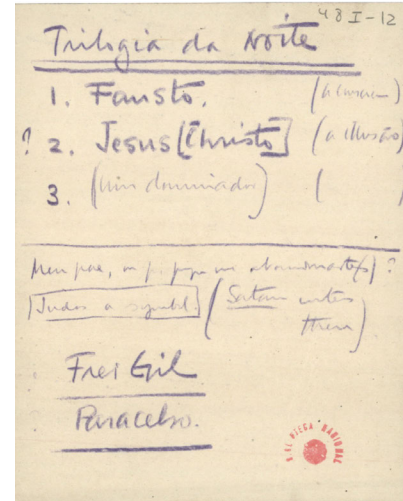 48 I-12
Trilogia da Noite
1. Fausto. (a
? 2. Jesus [Christo] (a illusão)
3. (um dominador) (
Meu pae, ?
Judas o symbol. (Satan enters
them)
Frei Gil
Paracelso.
BIBLIOTECA NACIONAL